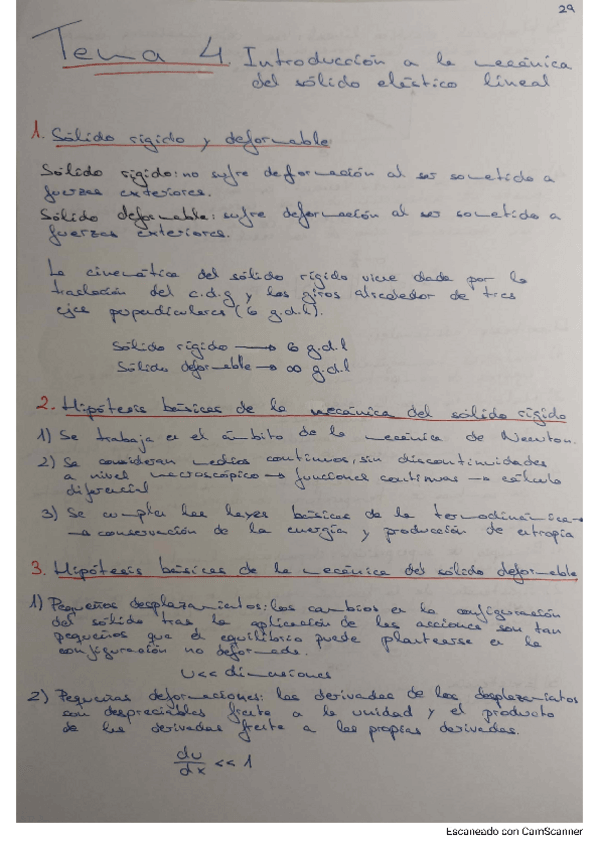 29
Tema 4. Introducción a la mecánica
del sólido elástico lineal
1. Sólido rígido y deformable
Sólido rígido: no sufre deformación al ser sometido a
fuerzas exteriores.
Sólido deformable: sufre deformación al ser sometido a
fuerzas exteriores.
La cinemática del sólido rígido viene dada por la
traslación del c.d.g y los giros alrededor de tres
ejes perpendiculares (6 g.d.l).
Sólido rígido → 6 g.d.l
Sólido deformable → ∞ g.d.l
2. Hipótesis básicas de la mecánica del sólido rígido
1) Se trabaja en el ámbito de la mecánica de Newton.
2) Se consideran medios continuos, sin discontinuidades
a nivel macroscópico → funciones continuas → cálculo
diferencial
3) Se cumplen las leyes básicas de la termodinámica →
→ conservación de la energía y producción de entropía
3. Hipótesis básicas de la mecánica del sólido deformable
1) Pequeños desplazamientos: los cambios en la configuración
del sólido tras la aplicación de las acciones son tan
pequeños que el equilibrio puede plantearse en la
configuración no deformada.
U << dimensiones
2) Pequeñas deformaciones: las derivadas de los desplazamientos
son despreciables frente a la unidad y el producto
de las derivadas frente a las propias derivadas.
du/dx << 1
Escaneado con CamScanner